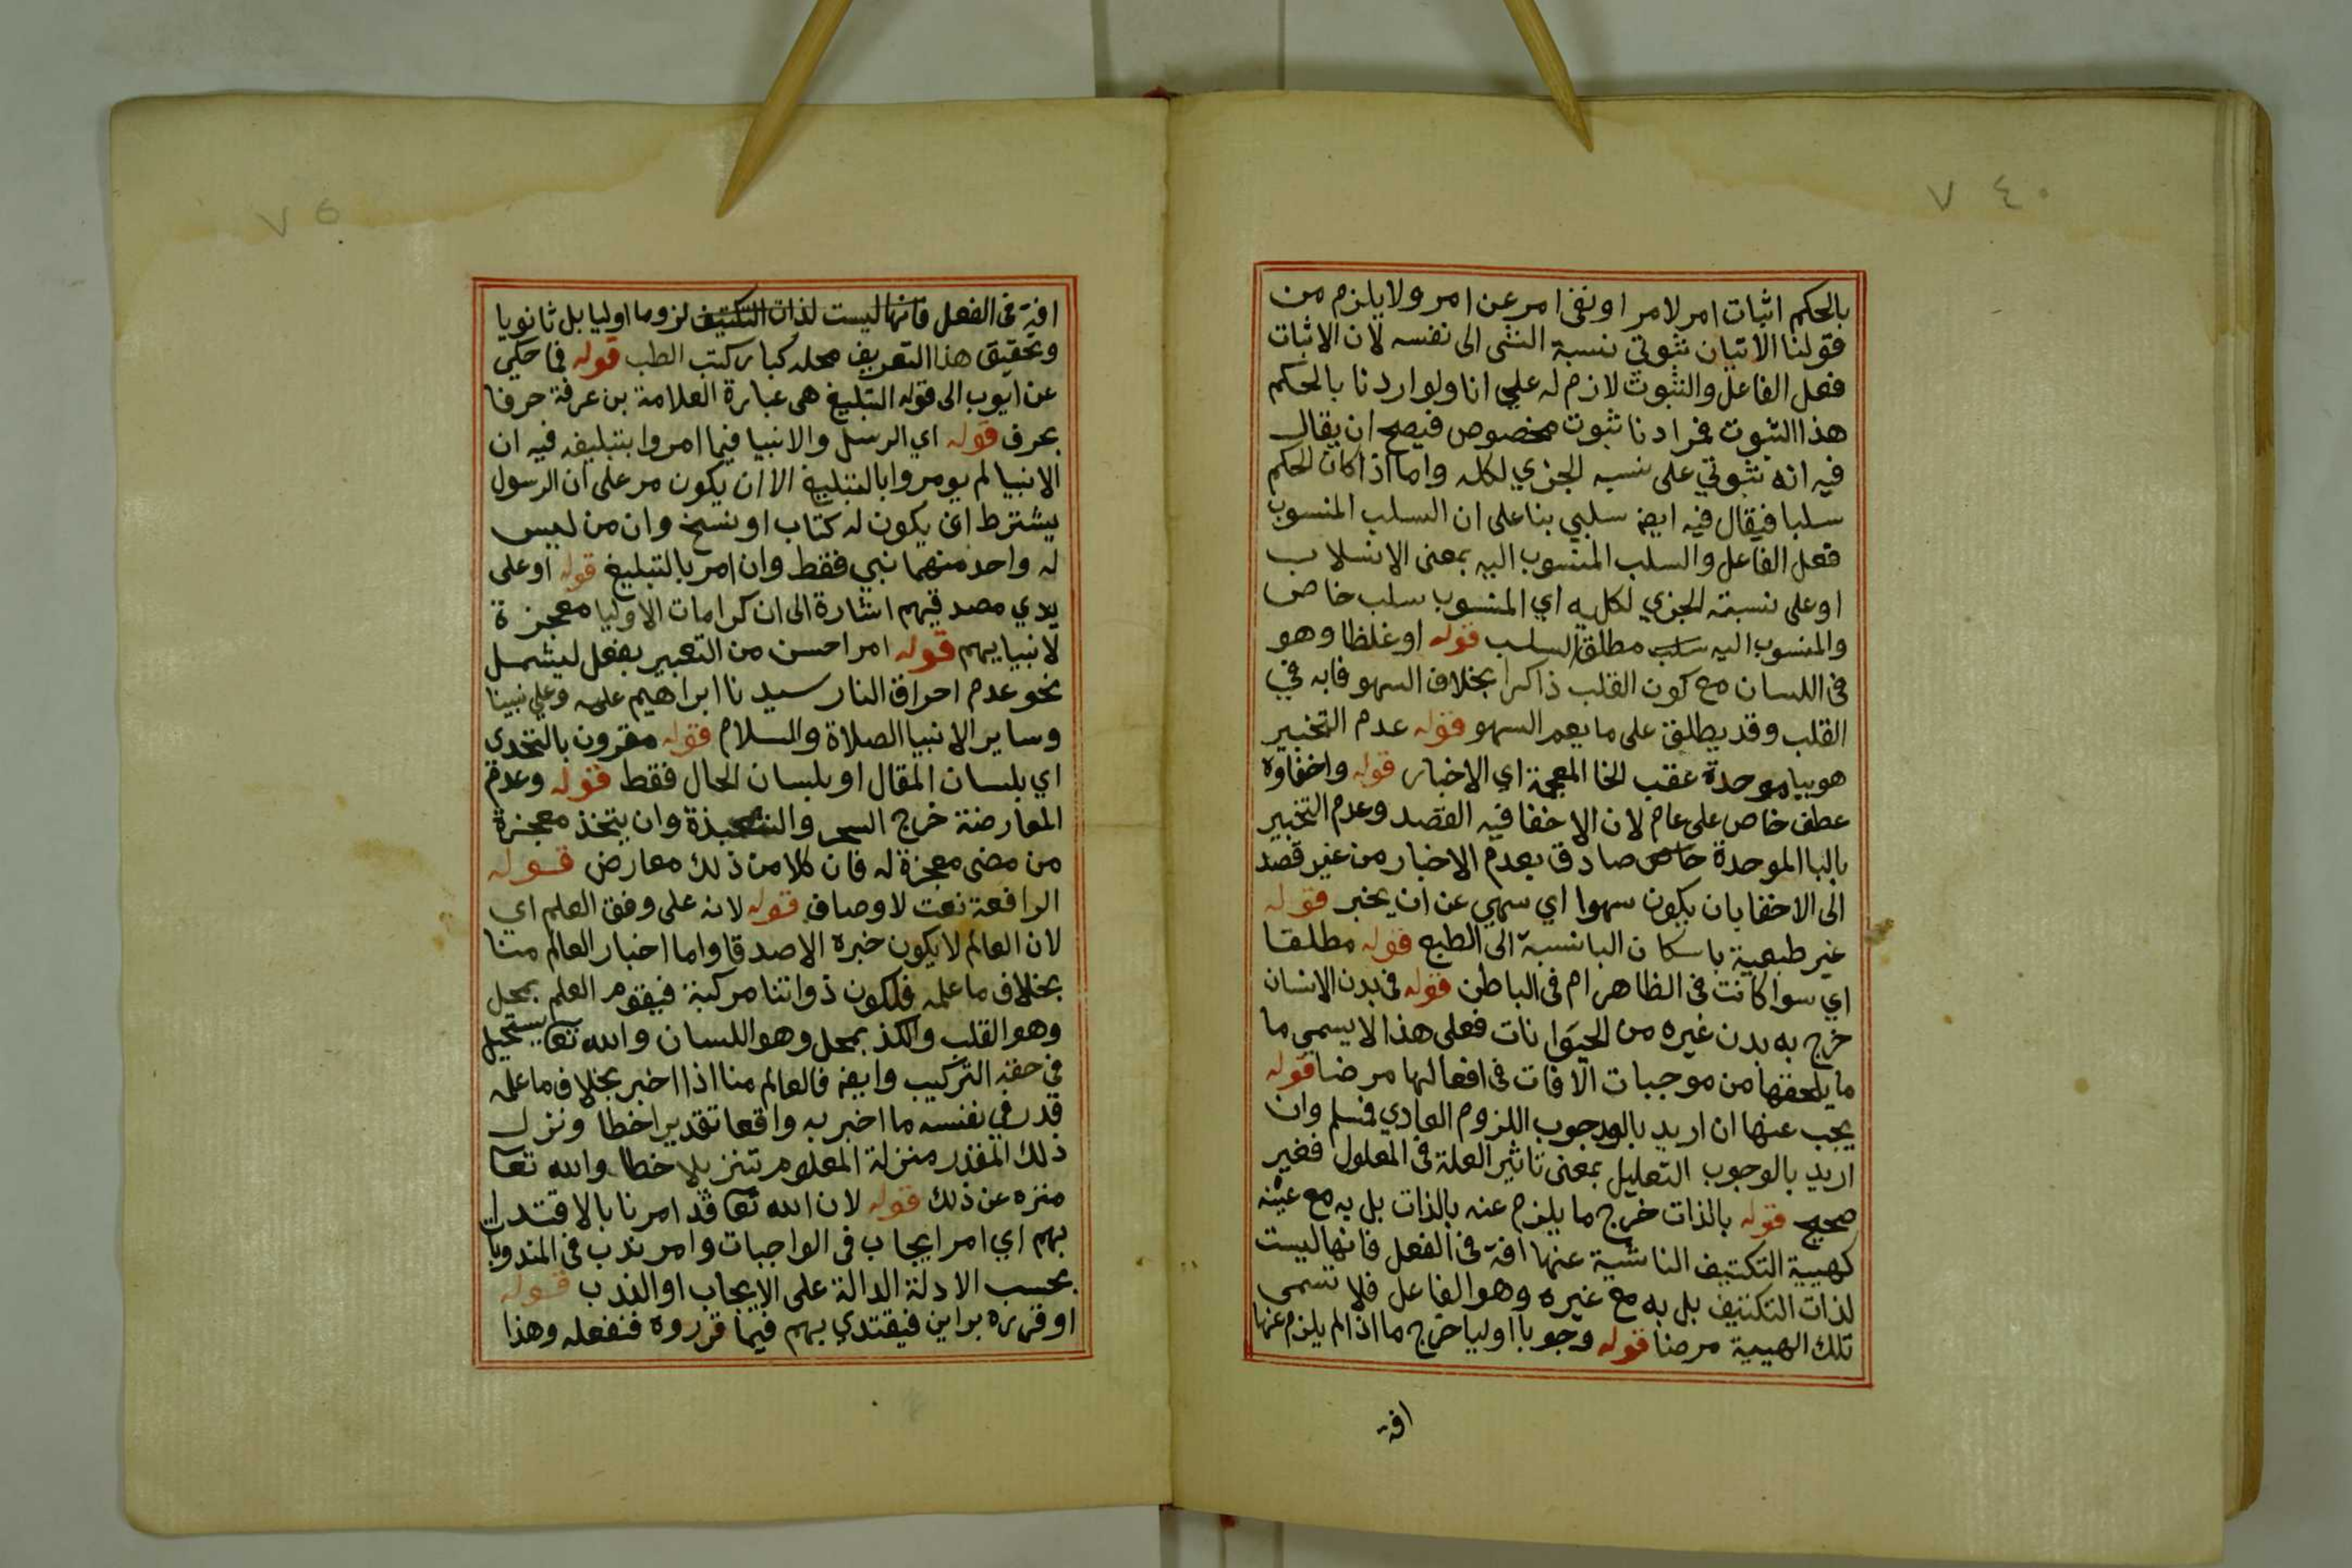 ٧٤٠
بالحكم اثبات امر لامر او نفى امر عن امر ولا يلزم من
قولنا الاتيان ثبوتي نسبة الشى الى نفسه لان الاثبات
فعل الفاعل والثبوت لازم له على انا ولو اردنا بالحكم
هذا الثبوت فمرادنا ثبوت مخصوص فيصح ان يقال
فيه انه ثبوتي على نسبه الجزي لكله واما اذا كان الحكم
سلبا فيقال فيه ايضا سلبي بنا على ان السلب المنسوب
فعل الفاعل والسلب المنسوب اليه بمعنى الانسلاب
او على نسبته الجزي لكليه اي المنسوب سلب خاص
والمنسوب اليه سلب مطلق السلب قوله او غلظا وهو
فى اللسان مع كون القلب ذاكرا بخلاف السهو فابه في
القلب وقد يطلق على ما يعم السهو قوله عدم التخبير
هو بيا موحدة عقب الخا المعجمة اي الاخبار قوله واخفاوه
عطف خاص على عام لان الاخفا فيه القصد وعدم التخبير
بالبا الموحدة خاص صادق بعدم الاخبار من غير قصد
الى الاخفا بان يكون سهوا اي سهي عن ان يخبر قوله
غير طبعية باسكان البا نسبة الى الطبع قوله مطلقا
اي سوا كانت فى الظاهر ام فى الباطن قوله فى بدن الانسان
خرج به بدن غيره من الحيوانات فعلى هذا لا يسمي ما
ما يلحقها من موجبات الافات فى افعالها مرضا قوله
يجب عنها ان اريد بالوجوب اللزوم العادي فمسلم وان
اريد بالوجوب التعليل بمعنى تاثير العلة فى المعلول فغير
صحيح قوله بالذات خرج ما يلزم عنه بالذات بل به مع غيره
كهيية التكتيف الناشية عنها افة فى الفعل فانها ليست
لذات التكتيف بل به مع غيره وهو الفاعل فلا تسمى
تلك الهيية مرضا قوله وجوبا اوليا خرج ما اذا لم يلزم عنها
افة
٧٥
افة فى الفعل فانها ليست لذات التكتيف لزوما اوليا بل ثانويا
وتحقيق هذا التعريف محله كبار كتب الطب قوله فما حكي
عن ايوب الى قوله التبليغ هى عبارة العلامة بن عرفة حرفا
بحرف قوله اي الرسل والانبيا فيما امروا بتبليغه فيه ان
الانبيا لم يومروا بالتبليغ الا ان يكون مر على ان الرسول
يشترط ان يكون له كتاب او نسخ وان من ليس
له واحد منهما نبي فقط وان امر بالتبليغ قوله او على
يدي مصدقيهم اشارة الى ان كرامات الاوليا معجزة
لانبيايهم قوله امر احسن من التعبير بفعل ليشمل
نحو عدم احراق النار سيدنا ابراهيم عليه وعلي نبينا
وساير الانبيا الصلاة والسلام قوله مقرون بالتحدي
اي بلسان المقال او بلسان الحال فقط قوله وعدم
المعارضة خرج السحر والشعبذة وان يتخذ معجزة
من مضى معجزة له فان كلا من ذلك معارض قوله
الرافعة نعت لاوصاف قوله لانه على وفق العلم اي
لان العالم لا يكون خبره الا صدقا واما اخبار العالم منا
بخلاف ما علمه فلكون ذواتنا مركبة فيقوم العلم بمحل
وهو القلب والكذ بمحل وهو اللسان والله تعا يستحيل
في حقه التركيب وايضا فالعالم منا اذا اخبر بخلاف ما علمه
قدر في نفسه ما اخبر به واقعا تقديرا خطا ونزل
ذلك المقدر منزلة المعلوم تنزيلا خطا والله تعا
منزه عن ذلك قوله لان الله تعا قد امرنا بالاقتدا
بهم اي امر ايجاب فى الواجبات وامر ندب فى المندوبات
بحسب الادلة الدالة على الايجاب او الندب قوله
او قرره براين فيقتدي بهم فيما قرروه فنفعله وهذا